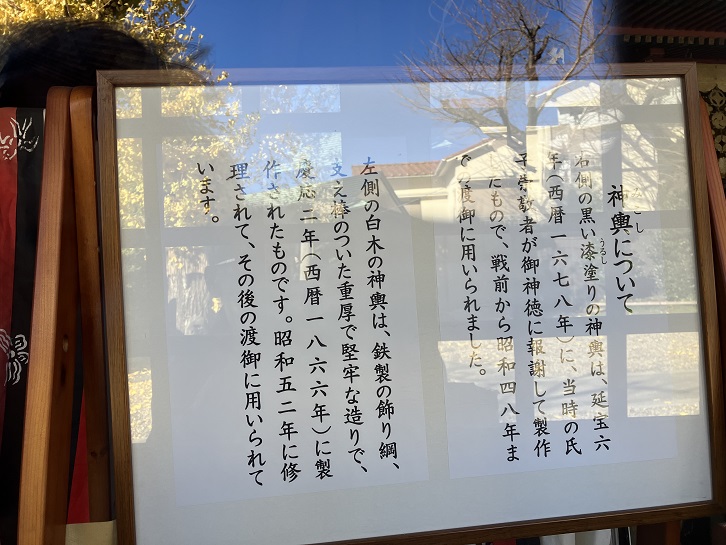 神輿について
こし
右側の黒い漆塗りの神輿は、延宝六
うるし
年(西暦一六七八年)に、当時の氏
子崇敬者が御神徳に報謝して製作
たもので、戦前から昭和四八年ま
で渡御に用いられました。
左側の白木の神輿は、鉄製の飾り綱、
支え棒のついた重厚で堅牢な造りで、
慶応二年(西暦一八六六年)に製
作されたものです。昭和五二年に修
理されて、その後の渡御に用いられて
います。